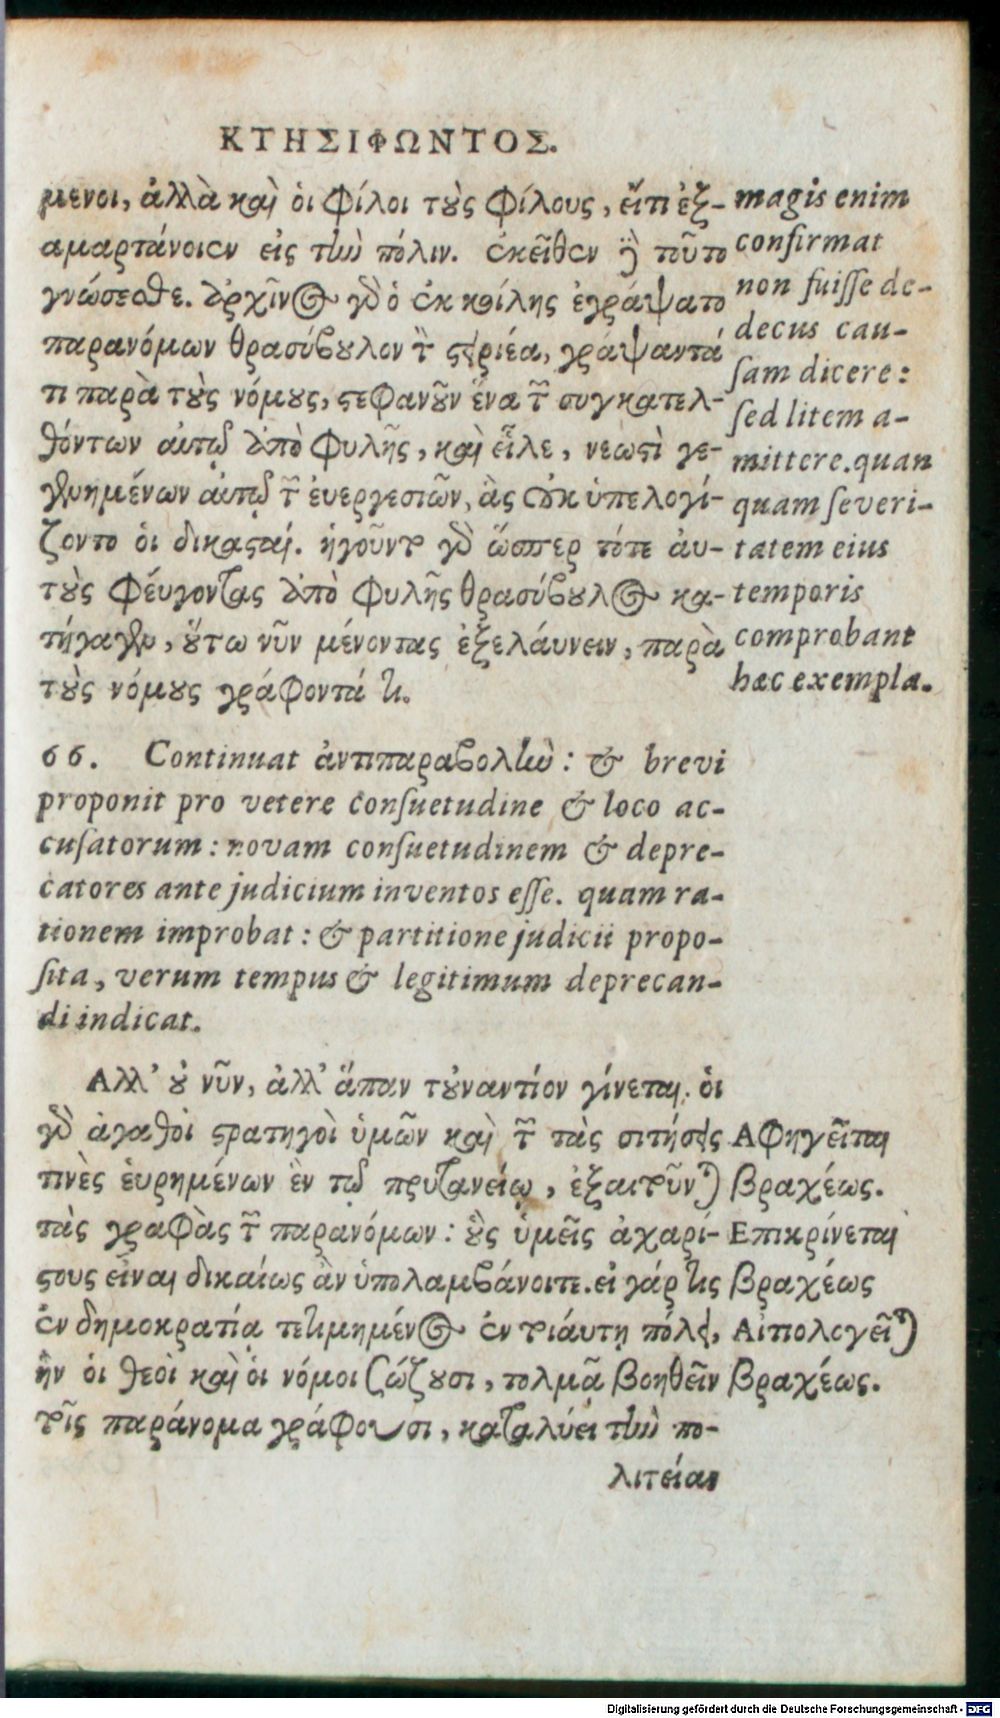 ΚΤΗΣΙΦΩΝΤΟΣ.
μενοι, ἀλλὰ καὶ ὁι φίλοι τοὺς φίλους, εἴ τι ἐξ-
αμαρτάνοιεν εἰς τὴν πόλιν. ἐκεῖθεν δὲ τοῦτο
γνώσεσθε. ἀρχῖνος γὸ ὁ ἐκ κοίλης ἐγράψατο
παρανόμων θρασύβουλον τὸν στειριέα, γράψαντά
τι παρὰ τοὺς νόμους, στεφανοῦν ἕνα τῶν συγκατελ-
θόντων αὐτῷ ἀπὸ φυλῆς, καὶ εἷλε, νεωστὶ γε-
γενημένων αὐτῷ τῶν ἐυεργεσιῶν, ἃς οὐκ ὑπελογί-
ζοντο ὁι δικασταί. ἡγοῦντο γὸ ὥσπερ τότε ἀυ-
τοὺς φεύγοντας ἀπὸ φυλῆς θρασύβουλος κα-
τήγαγεν, οὕτω νῦν μένοντας ἐξελάυνειν, παρὰ
τοὺς νόμους γράφοντά τι.
magis enim
confirmat
non fuisse de-
decus cau-
sam dicere:
sed litem a-
mittere. quan
quam severi-
tatem eius
temporis
comprobant
hæc exempla.
66. Continuat ἀντιπαραβολὴν: & brevi
proponit pro vetere consuetudine & loco ac-
cusatorum: novam consuetudinem & depre-
catores ante judicium inventos esse. quam ra-
tionem improbat: & partitione judicii propo-
sita, verum tempus & legitimum deprecan-
di indicat.
Αλλ’ οὐ νῦν, ἀλλ’ ἅπαν τοὐναντίον γίνεται. ὁι
γὸ ἀγαθοὶ στρατηγοὶ ὑμῶν καὶ τῶν τὰς σιτήσεις
τινὲς ἑυρημένων ἐν τῷ πρυτανείῳ, ἐξαιτοῦνται
τὰς γραφὰς τῶν παρανόμων: οὓς ὑμεῖς ἀχαρί-
στους εἶναι δικαίως ἂν ὑπολαμβάνοιτε. εἰ γάρ τις
ἐν δημοκρατίᾳ τετιμημένος ἐν τοιάυτῃ πόλει,
ἣν ὁι θεοὶ καὶ ὁι νόμοι σώζουσι, τολμᾷ βοηθεῖν
τοῖς παράνομα γράφουσι, καταλύει τὴν πο-
λιτείαν
Αφηγεῖται
βραχέως.
Επικρίνεται
βραχέως
Αἰτιολογεῖται
βραχέως.
Digitalisierung gefördert durch die Deutsche Forschungsgemeinschaft - DFG